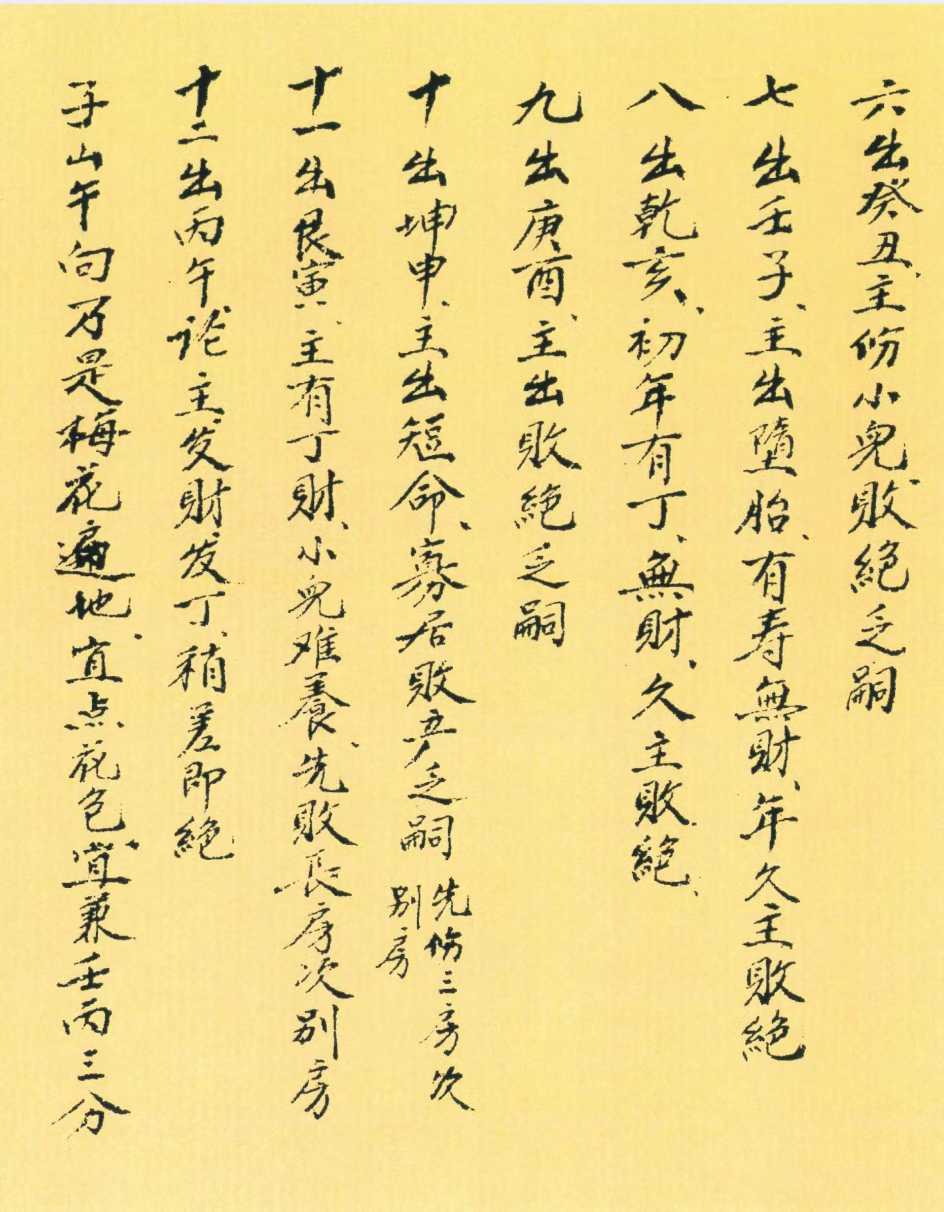 六出癸丑、主伤小兒、敗絕乏嗣
七出壬子、主出墮胎、有寿無財、年久主敗絕
八出乾亥、初年有丁、無財、久主敗絕、
九出庚酉、主出敗絕乏嗣
十出坤申、主出短命、寡居敗产乏嗣 先伤三房次别房
十一出艮寅、主有丁財、小兒难養、先敗長房次别房
十二出丙午、论主、发財、发丁、稍差即絕
子山午向乃是梅花遍地、宜点花色、宜兼壬丙三分